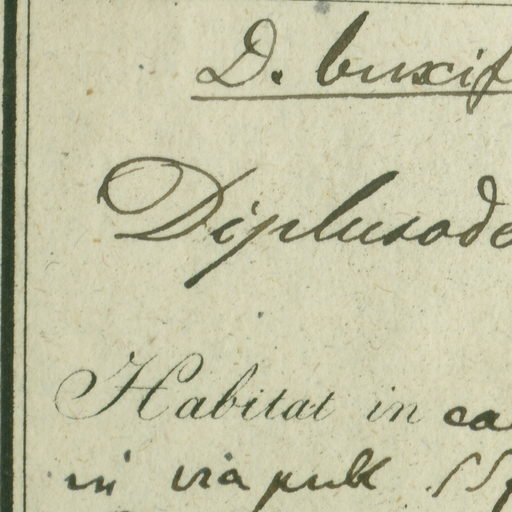 D. buxif
Diplusode
Habitat in ca
in via publ